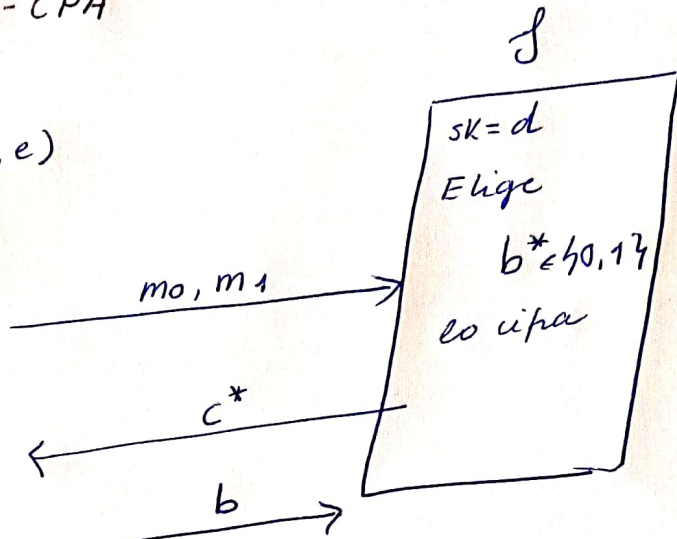 - CPA
S
e)
sk = d
Elige
b* ∈ {0,1}
lo cifra
m0, m1
c*
b